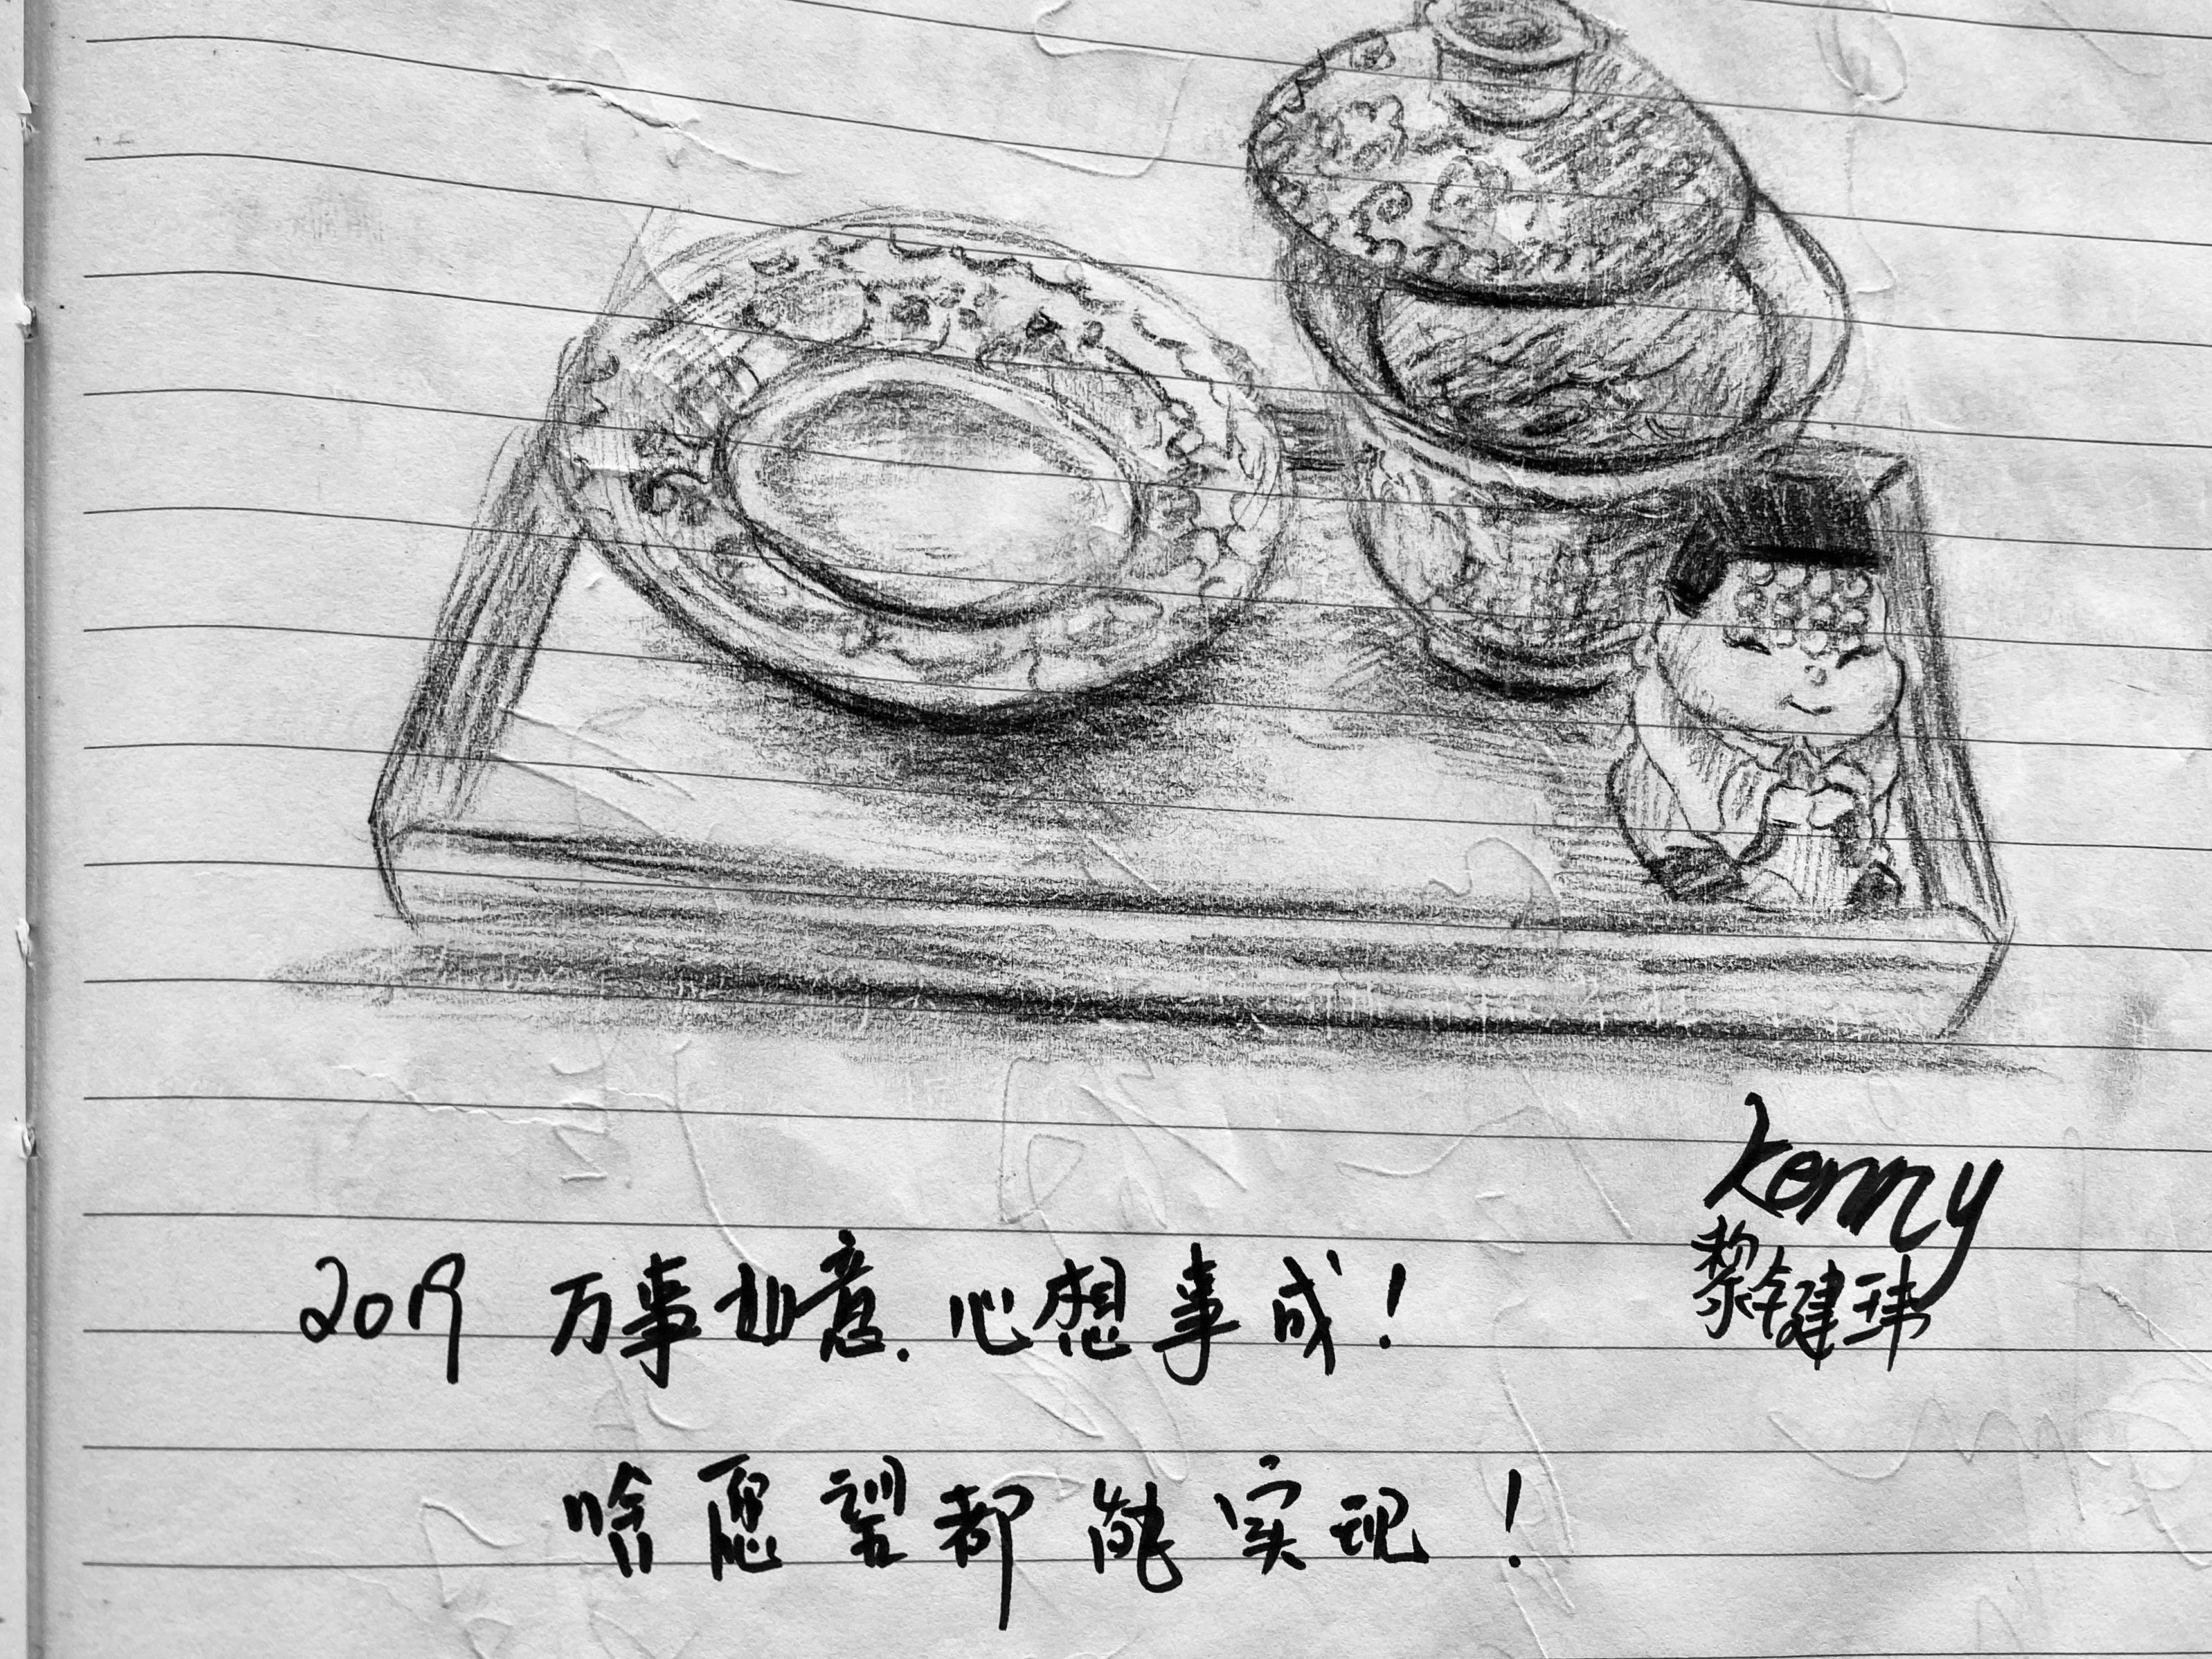 Kenny
黎健玮
2019 万事如意.心想事成!
啥愿望都能实现!